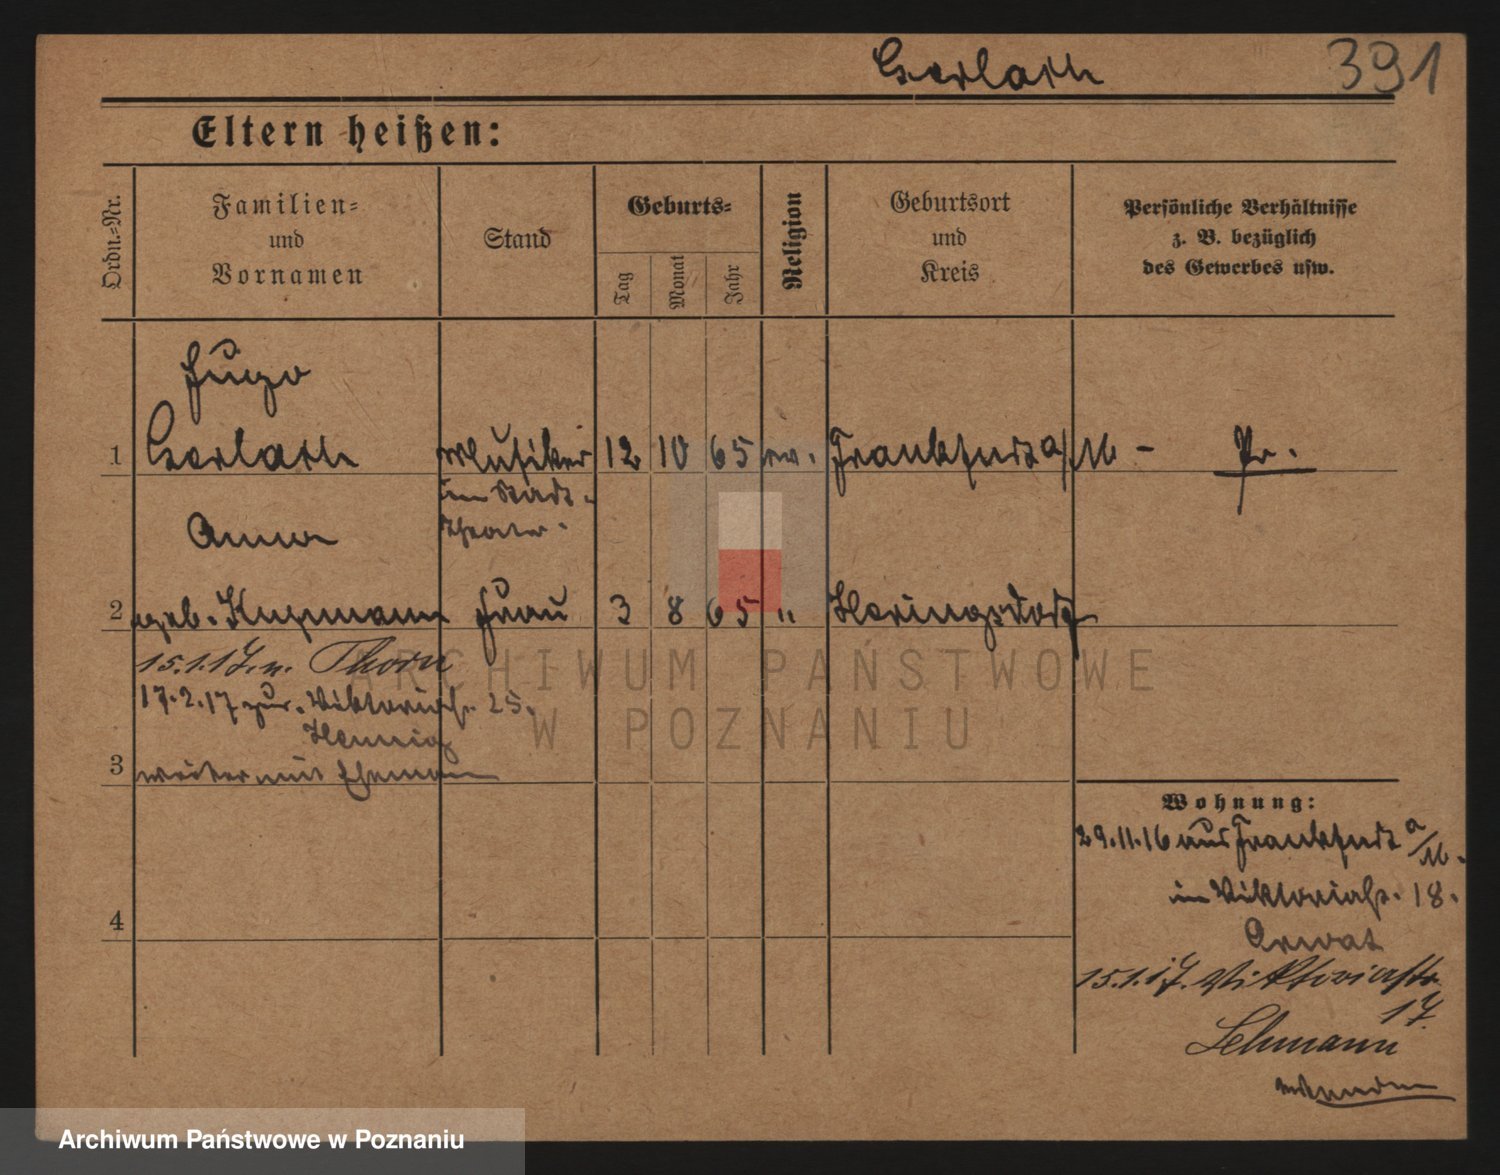 Gerlach 391
Eltern heißen:
Ordn.-Nr.
Familien-
und
Vornamen
Stand
Geburts-
Tag
Monat
Jahr
Religion
Geburtsort
und
Kreis
Persönliche Verhältnisse
z. B. bezüglich
des Gewerbes usw.
Hugo
1 Gerlach Musiker 12 10 65 ev. Frankfurt a/M - Pr.
im Stadt-
theater.
Anna
2 geb. Kupmann Frau 3 8 65 " Heringsdorf
15.1.17 n. Thorn
17.2.17 zur. Viktoriastr. 25.
Hennig
3 weiter mit Ehemann
Wohnung:
29.11.16 aus Frankfurt a/M.
in Viktoriastr. 18.
Arwat
4
15.1.17. Viktoriastr.
17.
Lehmann
ARCHIWUM PAŃSTWOWE
W POZNANIU
Archiwum Państwowe w Poznaniu